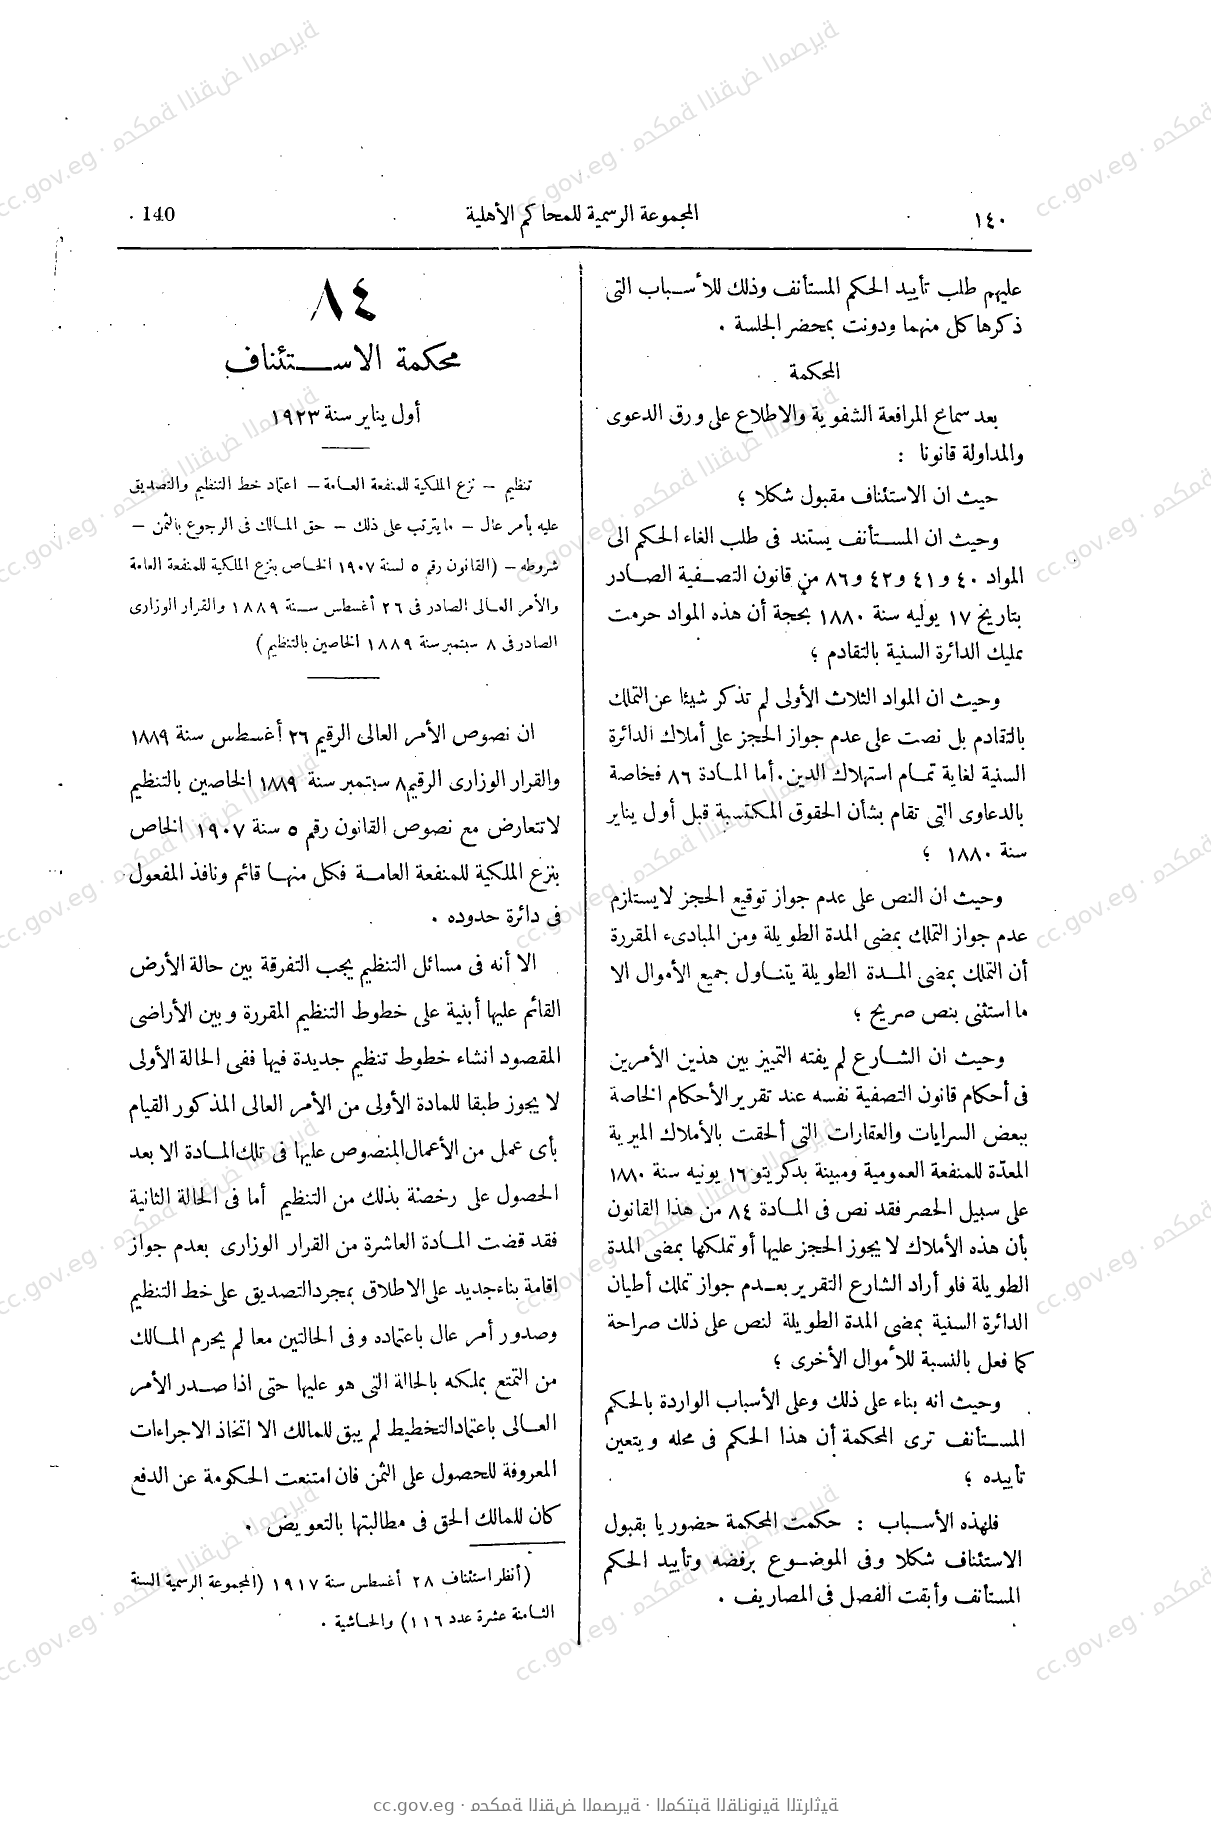 ١٤٠
المجموعة الرسمية للمحاكم الأهلية
140
عليهم طلب تأييد الحكم المستأنف وذلك للأسباب التى
ذكرها كل منهما ودونت بمحضر الجلسة .
المحكمة
بعد سماع المرافعة الشفوية والاطلاع على ورق الدعوى
والمداولة قانونا :
حيث ان الاستئناف مقبول شكلا ؛
وحيث ان المستأنف يستند فى طلب الغاء الحكم الى
المواد ٤٠ و٤١ و٤٢ و٨٦ من قانون التصفية الصادر
بتاريخ ١٧ يوليه سنة ١٨٨٠ بحجة أن هذه المواد حرمت
تمليك الدائرة السنية بالتقادم ؛
وحيث ان المواد الثلاث الأولى لم تذكر شيئا عن التملك
بالتقادم بل نصت على عدم جواز الحجز على أملاك الدائرة
السنية لغاية تمام استهلاك الدين . أما المادة ٨٦ فخاصة
بالدعاوى التى تقام بشأن الحقوق المكتسبة قبل أول يناير
سنة ١٨٨٠ ؛
وحيث ان النص على عدم جواز توقيع الحجز لا يستلزم
عدم جواز التملك بمضى المدة الطويلة ومن المبادىء المقررة
أن التملك بمضى المدة الطويلة يتناول جميع الأموال الا
ما استثنى بنص صريح ؛
وحيث ان الشارع لم يفته التمييز بين هذين الأمرين
فى أحكام قانون التصفية نفسه عند تقرير الأحكام الخاصة
ببعض السرايات والعقارات التى ألحقت بالأملاك الميرية
المعدّة للمنفعة العمومية ومبينة بدكريتو ١٦ يونيه سنة ١٨٨٠
على سبيل الحصر فقد نص فى المادة ٨٤ من هذا القانون
بأن هذه الأملاك لا يجوز الحجز عليها أو تملكها بمضى المدة
الطويلة فلو أراد الشارع التقرير بعدم جواز تملك أطيان
الدائرة السنية بمضى المدة الطويلة لنص على ذلك صراحة
كما فعل بالنسبة للأموال الأخرى ؛
وحيث انه بناء على ذلك وعلى الأسباب الواردة بالحكم
المستأنف ترى المحكمة أن هذا الحكم فى محله ويتعين
تأييده ؛
فلهذه الأسباب : حكمت المحكمة حضوريا بقبول
الاستئناف شكلا وفى الموضوع برفضه وتأييد الحكم
المستأنف وأبقت الفصل فى المصاريف .
٨٤
محكمة الاستئناف
أول يناير سنة ١٩٢٣
تنظيم – نزع الملكية للمنفعة العامة – اعتماد خط التنظيم والتصديق
عليه بأمر عال – ما يترتب على ذلك – حق المالك فى الرجوع بالثمن –
شروطه – (القانون رقم ٥ لسنة ١٩٠٧ الخاص بنزع الملكية للمنفعة العامة
والأمر العالى الصادر فى ٢٦ أغسطس سنة ١٨٨٩ والقرار الوزارى
الصادر فى ٨ سبتمبر سنة ١٨٨٩ الخاصين بالتنظيم )
ان نصوص الأمر العالى الرقيم ٢٦ أغسطس سنة ١٨٨٩
والقرار الوزارى الرقيم ٨ سبتمبر سنة ١٨٨٩ الخاصين بالتنظيم
لا تتعارض مع نصوص القانون رقم ٥ سنة ١٩٠٧ الخاص
بنزع الملكية للمنفعة العامة فكل منها قائم ونافذ المفعول
فى دائرة حدوده .
الا أنه فى مسائل التنظيم يجب التفرقة بين حالة الأرض
القائم عليها أبنية على خطوط التنظيم المقررة وبين الأراضى
المقصود انشاء خطوط تنظيم جديدة فيها ففى الحالة الأولى
لا يجوز طبقا للمادة الأولى من الأمر العالى المذكور القيام
بأى عمل من الأعمال المنصوص عليها فى تلك المادة الا بعد
الحصول على رخصة بذلك من التنظيم أما فى الحالة الثانية
فقد قضت المادة العاشرة من القرار الوزارى بعدم جواز
اقامة بناء جديد على الاطلاق بمجرد التصديق على خط التنظيم
وصدور أمر عال باعتماده وفى الحالتين معا لم يحرم المالك
من التمتع بملكه بالحالة التى هو عليها حتى اذا صدر الأمر
العالى باعتماد التخطيط لم يبق للمالك الا اتخاذ الاجراءات
المعروفة للحصول على الثمن فان امتنعت الحكومة عن الدفع
كان للمالك الحق فى مطالبتها بالتعويض .
(أنظر استئناف ٢٨ أغسطس سنة ١٩١٧ (المجموعة الرسمية السنة
الثامنة عشرة عدد ١١٦) والحاشية .
cc.gov.eg · محكمة النقض المصرية · المكتبة القانونية التراثية